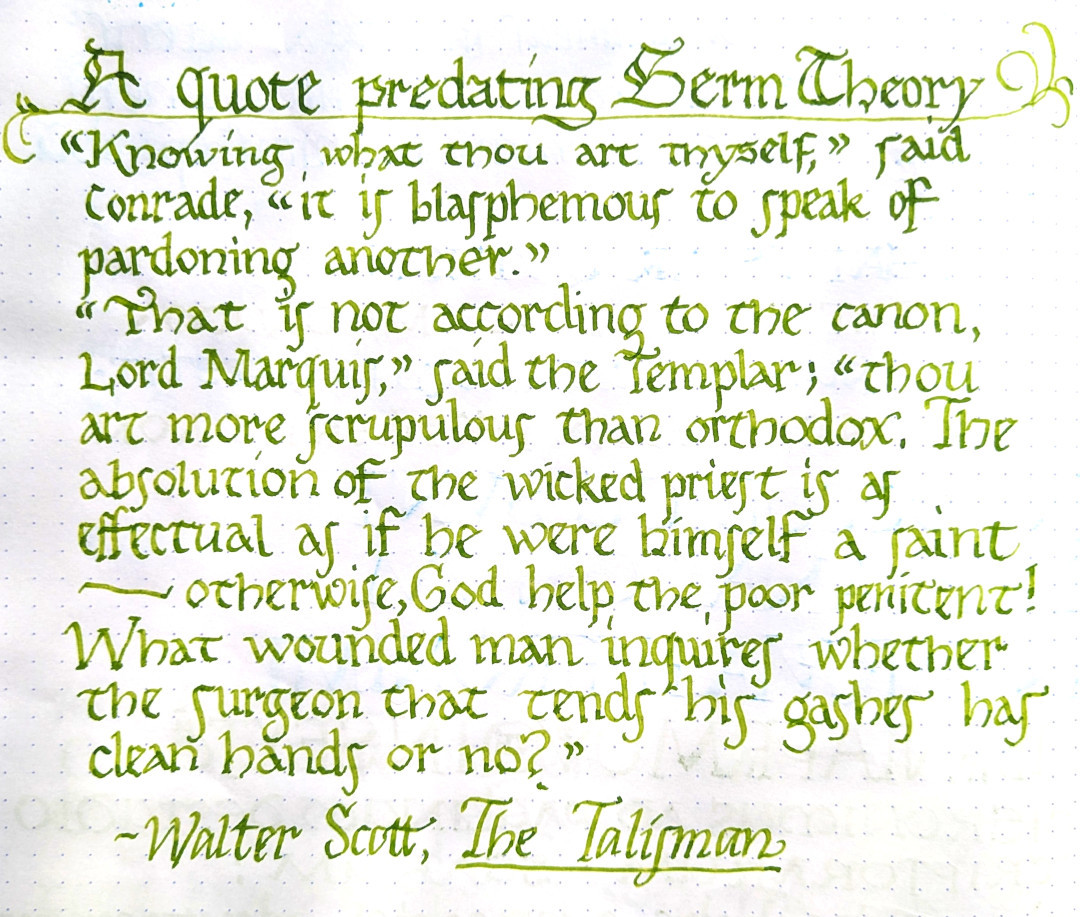 A quote predating Germ Theory
“Knowing what thou art thyself,” ſaid
Conrade, “it iſ blaſphemouſ to ſpeak of
pardoning another.”
“That iſ not according to the canon,
Lord Marquiſ,” ſaid the Templar; “thou
art more ſcrupulouſ than orthodox. The
abſolution of the wicked prieſt iſ aſ
effectual aſ if he were himſelf a ſaint
— otherwiſe, God help the poor penitent!
What wounded man inquireſ whether
the ſurgeon that tendſ hiſ gaſheſ haſ
clean handſ or no?”
~Walter Scott, The Taliſman